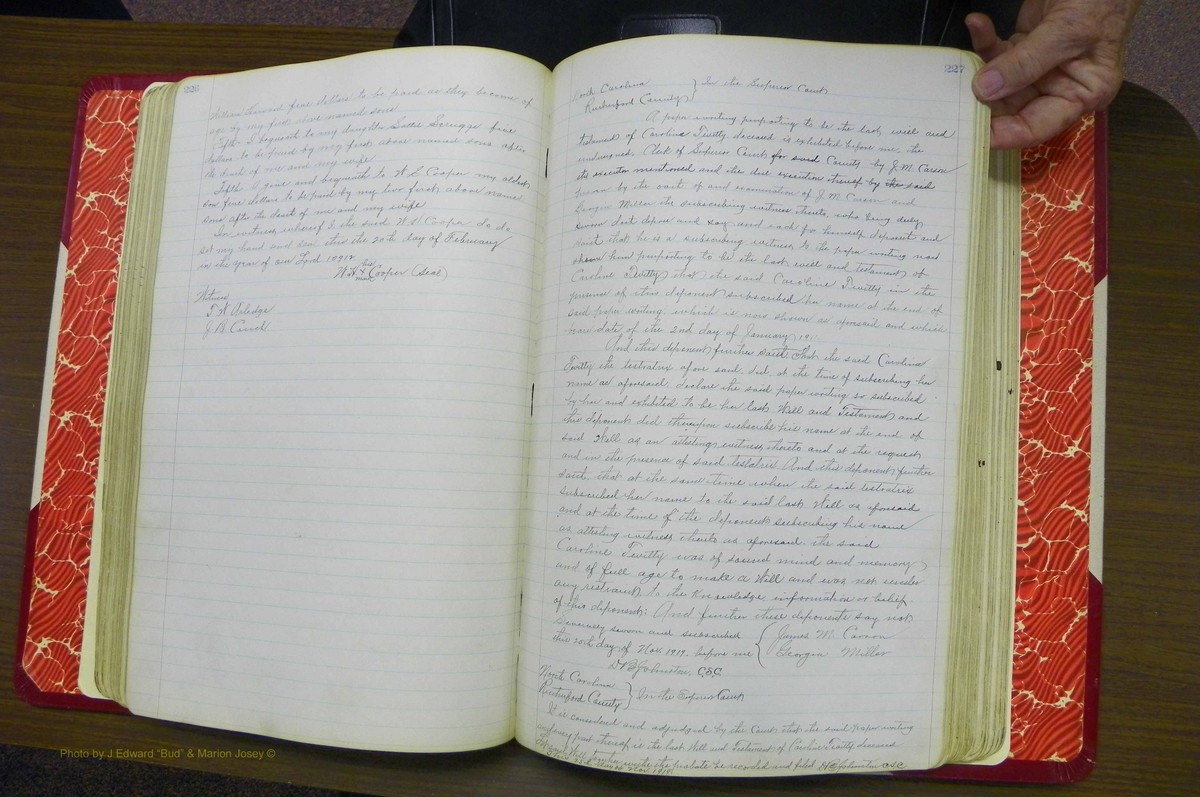 226
William Howard five dollars to be paid as they become of
age by my first above named sons
Fifth. I bequeath to my daughter Sallie Scruggs five
dollars to be paid by my first above named sons after
the death of me and my wife
Fifth I give and bequeath to W L Cooper my oldest
son five dollars to be paid by my two first above named
sons after the death of me and my wife
In witness whereof I the said W H Cooper do do
set my hand and seal this the 20th day of February
in the year of our Lord
W H his x mark Cooper (Seal)
Witness
T W Arledge
J B
227
North Carolina
Rutherford County } In the Superior Court
A paper writing purporting to be the last will and
testament of Caroline Twitty deceased is exhibited before me, the
undersigned Clerk of Superior Court for said County by J.M. Carson
the executor mentioned and the due execution thereof by the said
proven by the oath of and examination of J.M. Carson and
Georgia Miller the subscribing witness thereto, who being duly
sworn doth depose and say and each for himself deposeth and
saith that he is a subscribing witness to the paper writing now
shown him purporting to be the last will and testament of
Caroline Twitty that the said Caroline Twitty in the
presence of this deponent subscribed her name at the end of
said paper writing which is now shown as aforesaid and which
bears date of the 2nd day of January 191
And this deponent further saith That the said Caroline
Twitty the testatrix afore said did at the time of subscribing her
name as aforesaid declare the said paper writing so subscribed
by her and exhibited to be her last Will and Testament and
this deponent did thereupon subscribe his name at the end of
said Will as an attesting witness thereto and at the request
and in the presence of said testatrix And this deponent further
saith that at the same time when the said testatrix
subscribed her name to the said last Will as aforesaid
and at the time of the deponent subscribing his name
as attesting witness thereto as aforesaid the said
Caroline Twitty was of sound mind and memory
and of full age to make a Will and was not under
any restraint to the knowledge information or belief
of this deponent: And further these deponents say not
Severally sworn and subscribed { James M. Carson
this 20th day of Nov. 1919. before me Georgia Miller
W B Johnston C.S.C.
North Carolina
Rutherford County } In the Superior Court
It is considered and adjudged by the Court that the said paper writing
and every part thereof is the last Will and Testament of Caroline Twitty deceased
Will together with the probate be recorded and filed. Johnston CSC
Photo by J Edward "Bud" & Marion Josey ©